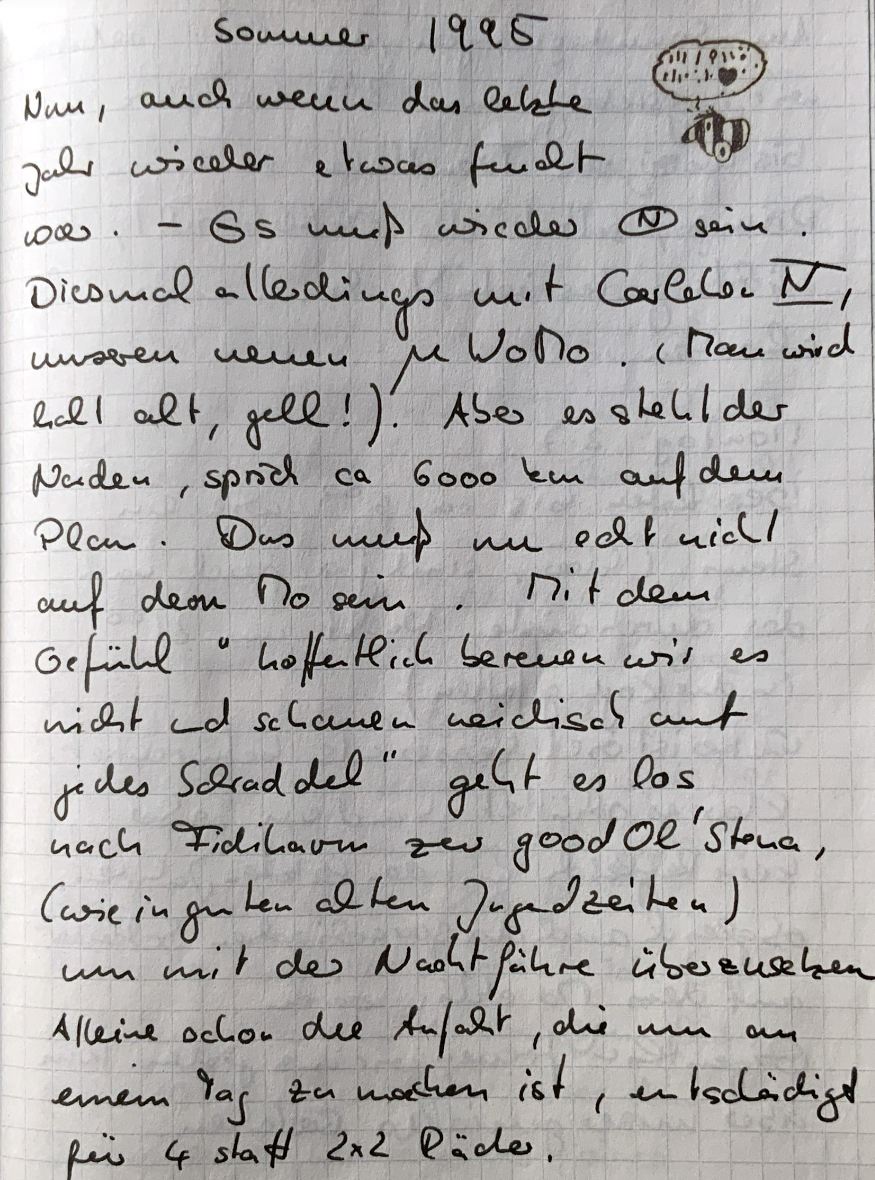 Sommer 1995
Nun, auch wenn das letzte
Jahr wieder etwas feucht
war. – Es muß wieder N sein.
Diesmal allerdings mit N,
unserem neuen µ WoMo. (Man wird
halt alt, gell!). Aber es steht der
Norden, sprich ca 6000 km auf dem
Plan. Das muß nu echt nicht
auf dem Mo sein. Mit dem
Gefühl "hoffentlich bereuen wir es
nicht und schauen neidisch auf
jedes" geht es los
nach Fidihavn zur good Ol' Stena,
(wie in guten alten Jugendzeiten)
um mit der Nachtfähre überzusetzen
Alleine schon die Anfahrt, die nun an
einem Tag zu machen ist, entschädigt
für 4 statt 2x2 Räder.